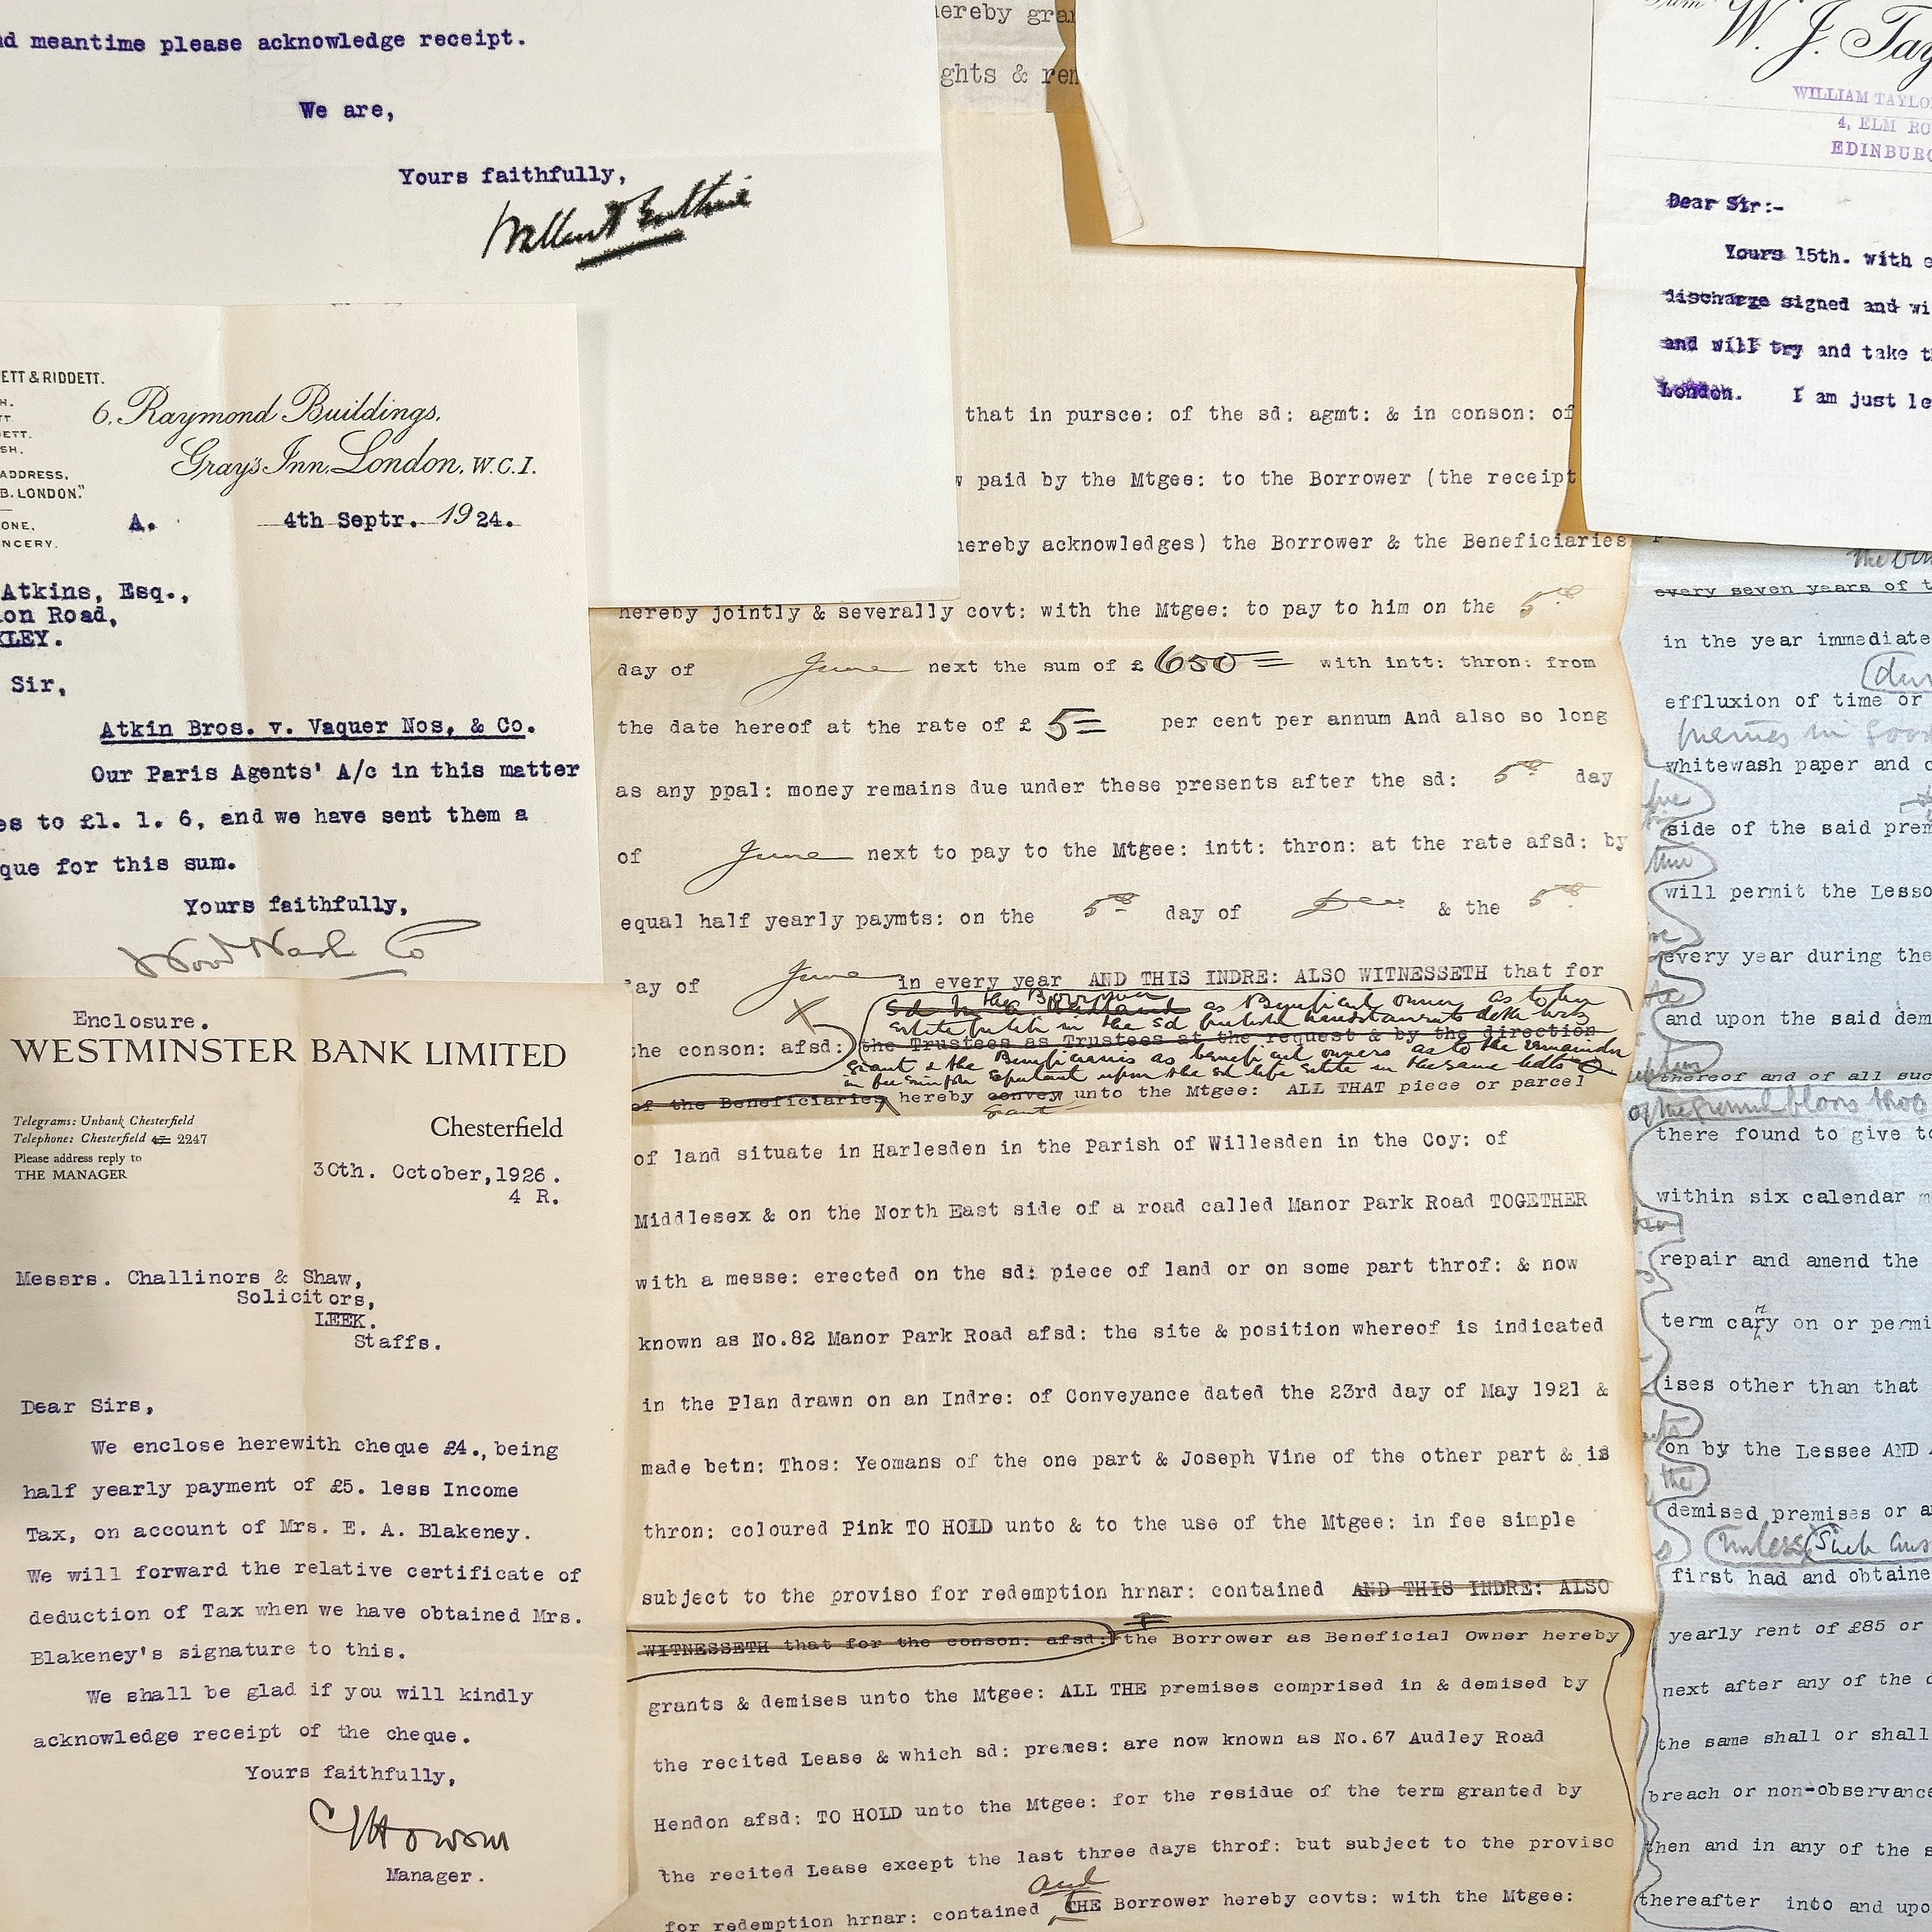 nd meantime please acknowledge receipt.
We are,
Yours faithfully,
ETT & RIDDETT.
6, Raymond Buildings,
Gray's Inn, London, W.C.1.
ADDRESS,
B. LONDON."
ONE,
NCERY.
A.
4th Septr. 1924.
Atkins, Esq.,
on Road,
KLEY.
Sir,
Atkin Bros. v. Vaquer Nos, & Co.
Our Paris Agents' A/c in this matter
es to £1. 1. 6, and we have sent them a
que for this sum.
Yours faithfully,
Wood Nash Co
Enclosure.
WESTMINSTER BANK LIMITED
Telegrams: Unbank Chesterfield
Telephone: Chesterfield 2247
Please address reply to
THE MANAGER
Chesterfield
30th. October,1926.
4 R.
Messrs. Challinors & Shaw,
Solicitors,
LEEK.
Staffs.
Dear Sirs,
We enclose herewith cheque £4., being
half yearly payment of £5. less Income
Tax, on account of Mrs. E. A. Blakeney.
We will forward the relative certificate of
deduction of Tax when we have obtained Mrs.
Blakeney's signature to this.
We shall be glad if you will kindly
acknowledge receipt of the cheque.
Yours faithfully,
Manager.
hereby gran
ghts & rem
that in pursce: of the sd: agmt: & in conson: of
w paid by the Mtgee: to the Borrower (the receipt
hereby acknowledges) the Borrower & the Beneficiaries
hereby jointly & severally covt: with the Mtgee: to pay to him on the 5th
day of June next the sum of £ 650= with intt: thron: from
the date hereof at the rate of £ 5= per cent per annum And also so long
as any ppal: money remains due under these presents after the sd: 5th day
of June next to pay to the Mtgee: intt: thron: at the rate afsd: by
equal half yearly paymts: on the 5th day of Dec & the 5th
day of June in every year AND THIS INDRE: ALSO WITNESSETH that for
the Borrower
as Beneficial owner as to her
estate in the sd
the conson: afsd: the Trustees as Trustees at the request & by the direction
grant & the Beneficiaries as beneficial owners as to the remainder
in fee simple expectant upon the sd life estate in the same
of the Beneficiaries hereby convey unto the Mtgee: ALL THAT piece or parcel
grant
of land situate in Harlesden in the Parish of Willesden in the Coy: of
Middlesex & on the North East side of a road called Manor Park Road TOGETHER
with a messe: erected on the sd: piece of land or on some part throf: & now
known as No.82 Manor Park Road afsd: the site & position whereof is indicated
in the Plan drawn on an Indre: of Conveyance dated the 23rd day of May 1921 &
made betn: Thos: Yeomans of the one part & Joseph Vine of the other part & is
thron: coloured Pink TO HOLD unto & to the use of the Mtgee: in fee simple
subject to the proviso for redemption hrnar: contained AND THIS INDRE: ALSO
WITNESSETH that for the conson: afsd: the Borrower as Beneficial Owner hereby
grants & demises unto the Mtgee: ALL THE premises comprised in & demised by
the recited Lease & which sd: premes: are now known as No.67 Audley Road
Hendon afsd: TO HOLD unto the Mtgee: for the residue of the term granted by
the recited Lease except the last three days throf: but subject to the proviso
and
for redemption hrnar: contained THE Borrower hereby covts: with the Mtgee:
W. J. Tay
WILLIAM TAYLO
4, ELM RO
EDINBURG
Dear Sir:-
Yours 15th. with e
discharge signed and wi
and will try and take th
London. I am just le
every seven years of t
in the year immediate
effluxion of time or
whitewash paper and c
side of the said prem
will permit the Lesso
every year during the
and upon the said dem
thereof and of all suc
there found to give to
within six calendar m
repair and amend the
term carry on or permi
ises other than that
on by the Lessee AND A
the
demised premises or a
Unless Such
first had and obtaine
yearly rent of £85 or
next after any of the d
the same shall or shall
breach or non-observance
then and in any of the s
thereafter into and upo